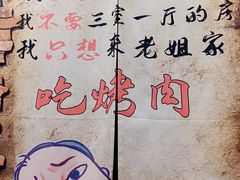 我不要三室一厅的房
我只想来老姐家
吃烤肉